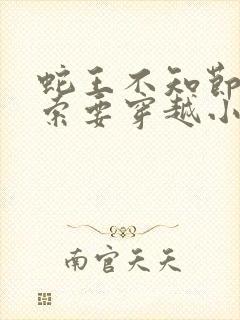 蛇王不知节
索要穿越小
南官天天